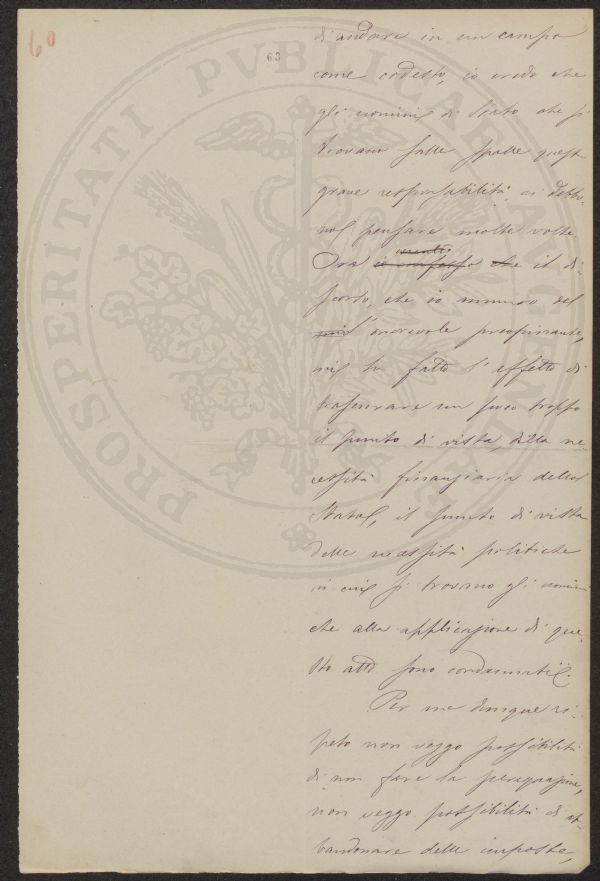 60
63
PROSPERITATI PVBLICAE AVGENDAE
di andare in un campo
come codesto, io credo che
gli uomini di Stato che si
trovano sulle spalle questa
grave responsabilità, ci debbo-
no pensare molte volte.
Ora io confesso che il di-
scorso, che io
onorevole preopinante,
mi ha fatto l'effetto di
trascurare un poco troppo
il punto di vista della ne-
cessità finanziaria dello
Stato, il punto di vista
delle necessità politiche
in cui si trovano gli uomini
che alla applicazione di que-
sto atto sono condannati.
Per me dunque ri-
peto non veggo possibilità
di non fare la perequazione,
non veggo possibilità di ab-
bandonare delle imposte,